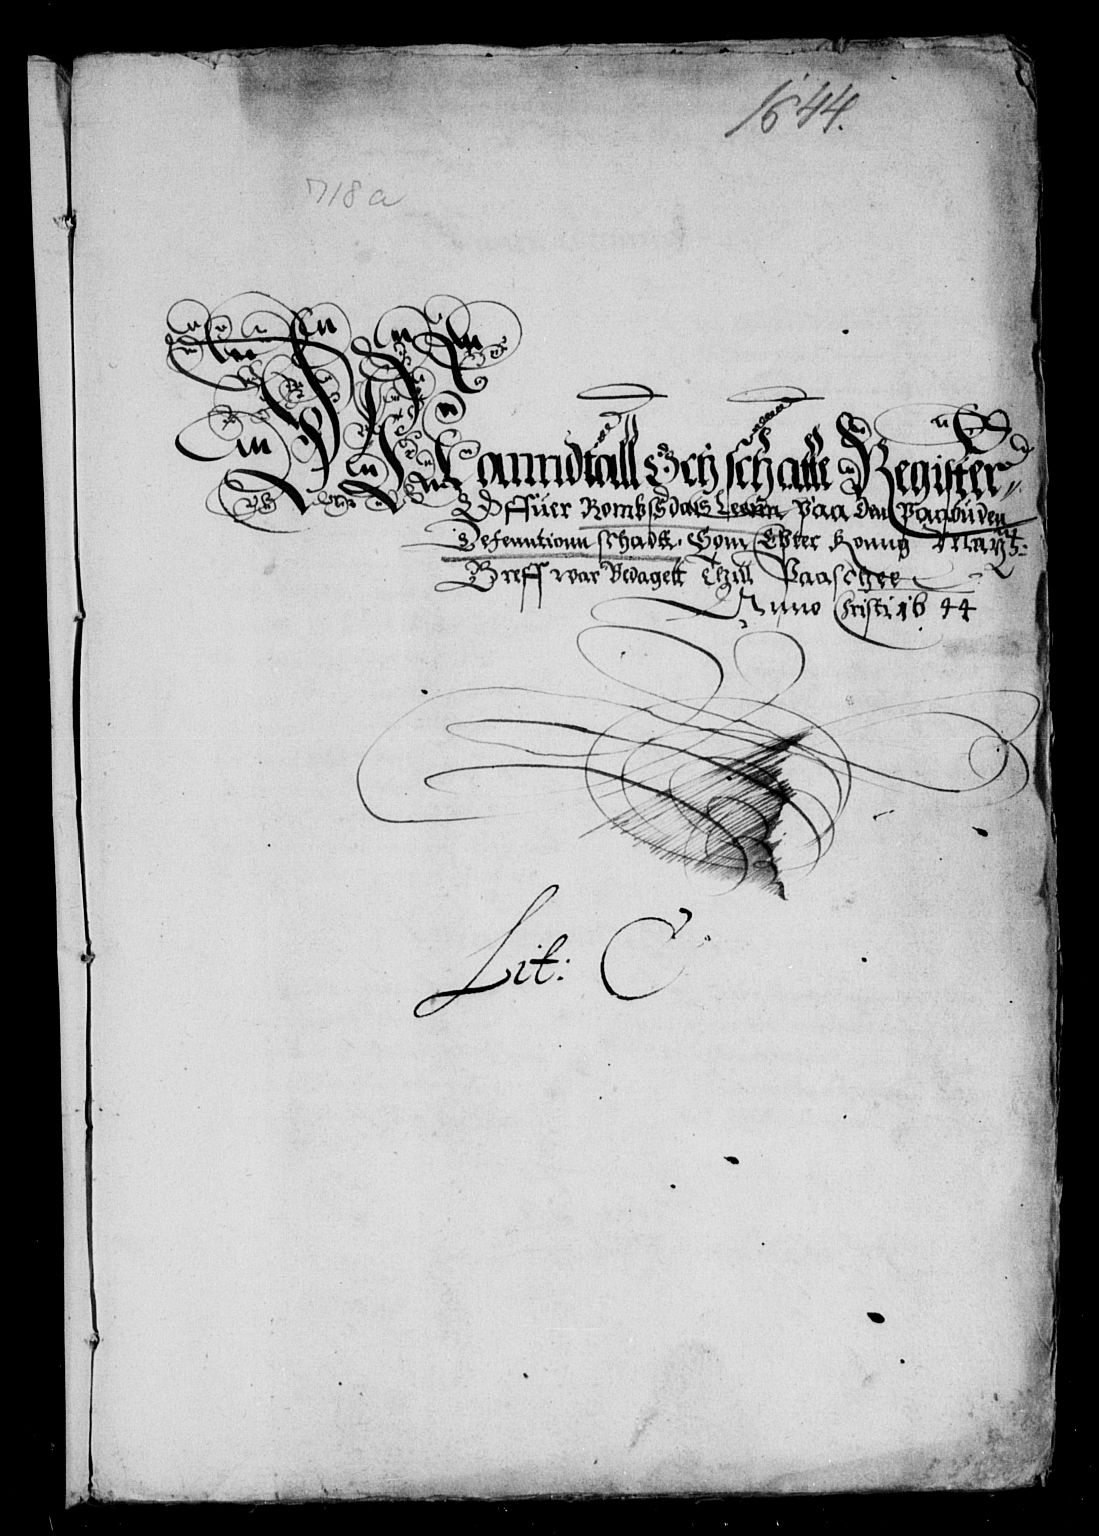 1644.
718 a
Manndtall Och schatte Register
Offuer Rombsdals Leenn Paa den Paabuden
Defenntionn schadt. Som Epter Konng Maytz:
Breff war Bedagett Thill Paaschee
Anno Cristi 1644
Lit: C